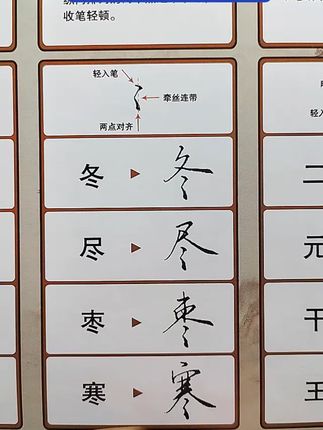 收笔轻顿。
轻入笔
牵丝连带
两点对齐
冬 冬
尽 尽
枣 枣
寒 寒
二
元
干
王